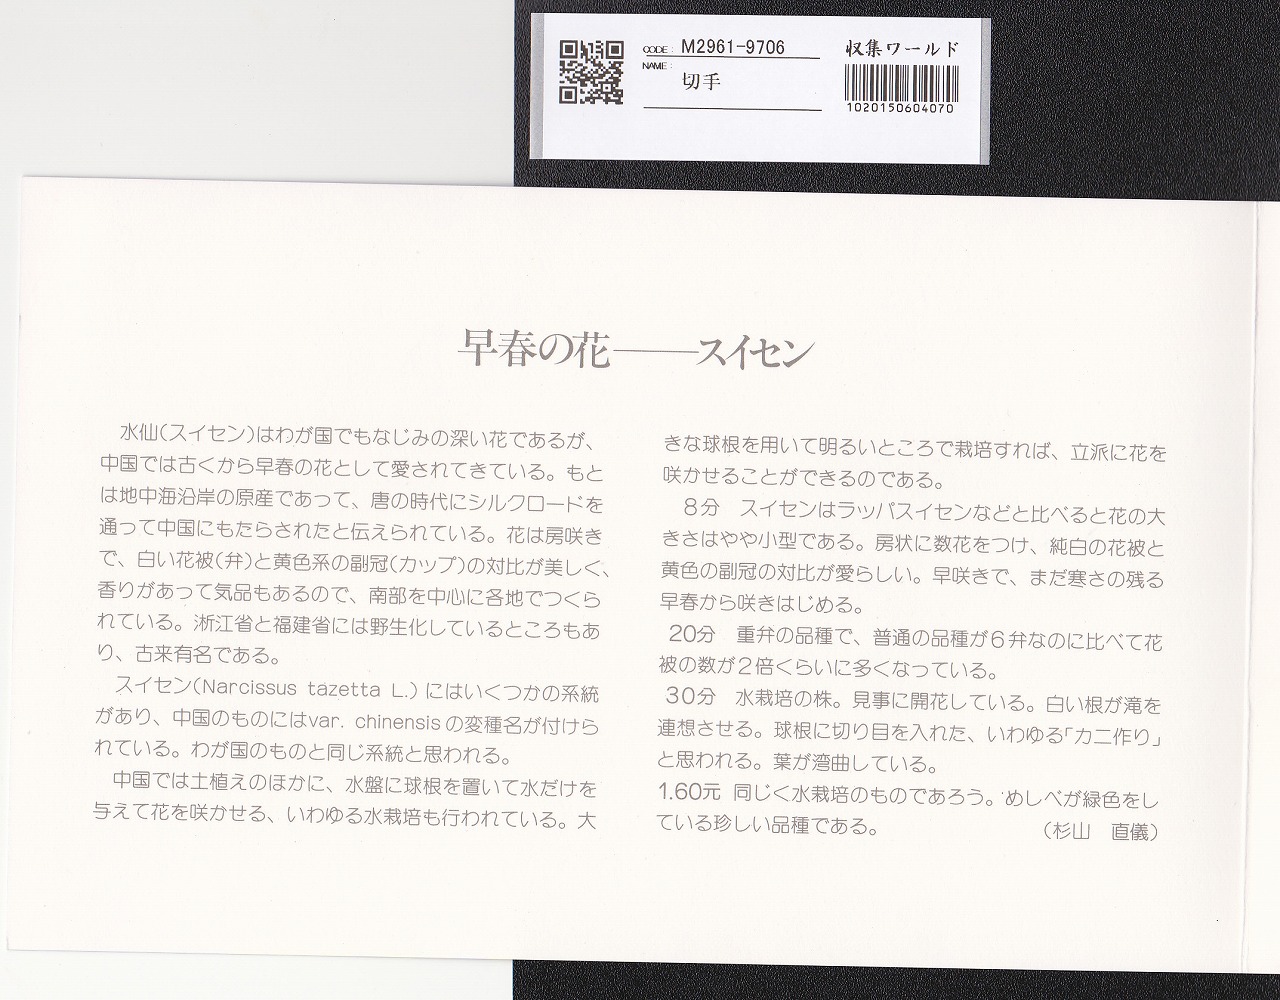 CODE: M2961-9706
NAME:
切手
収集ワールド
1020150604070
早春の花――スイセン
水仙(スイセン)はわが国でもなじみの深い花であるが、
中国では古くから早春の花として愛されてきている。もと
は地中海沿岸の原産であって、唐の時代にシルクロードを
通って中国にもたらされたと伝えられている。花は房咲き
で、白い花被(弁)と黄色系の副冠(カップ)の対比が美しく、
香りがあって気品もあるので、南部を中心に各地でつくら
れている。浙江省と福建省には野生化しているところもあ
り、古来有名である。
スイセン(Narcissus tazetta L.)にはいくつかの系統
があり、中国のものにはvar. chinensisの変種名が付けら
れている。わが国のものと同じ系統と思われる。
中国では土植えのほかに、水盤に球根を置いて水だけを
与えて花を咲かせる、いわゆる水栽培も行われている。大
きな球根を用いて明るいところで栽培すれば、立派に花を
咲かせることができるのである。
8分 スイセンはラッパスイセンなどと比べると花の大
きさはやや小型である。房状に数花をつけ、純白の花被と
黄色の副冠の対比が愛らしい。早咲きで、まだ寒さの残る
早春から咲きはじめる。
20分 重弁の品種で、普通の品種が6弁なのに比べて花
被の数が2倍くらいに多くなっている。
30分 水栽培の株。見事に開花している。白い根が滝を
連想させる。球根に切り目を入れた、いわゆる「カニ作り」
と思われる。葉が湾曲している。
1.60元 同じく水栽培のものであろう。めしべが緑色をし
ている珍しい品種である。 (杉山 直儀)